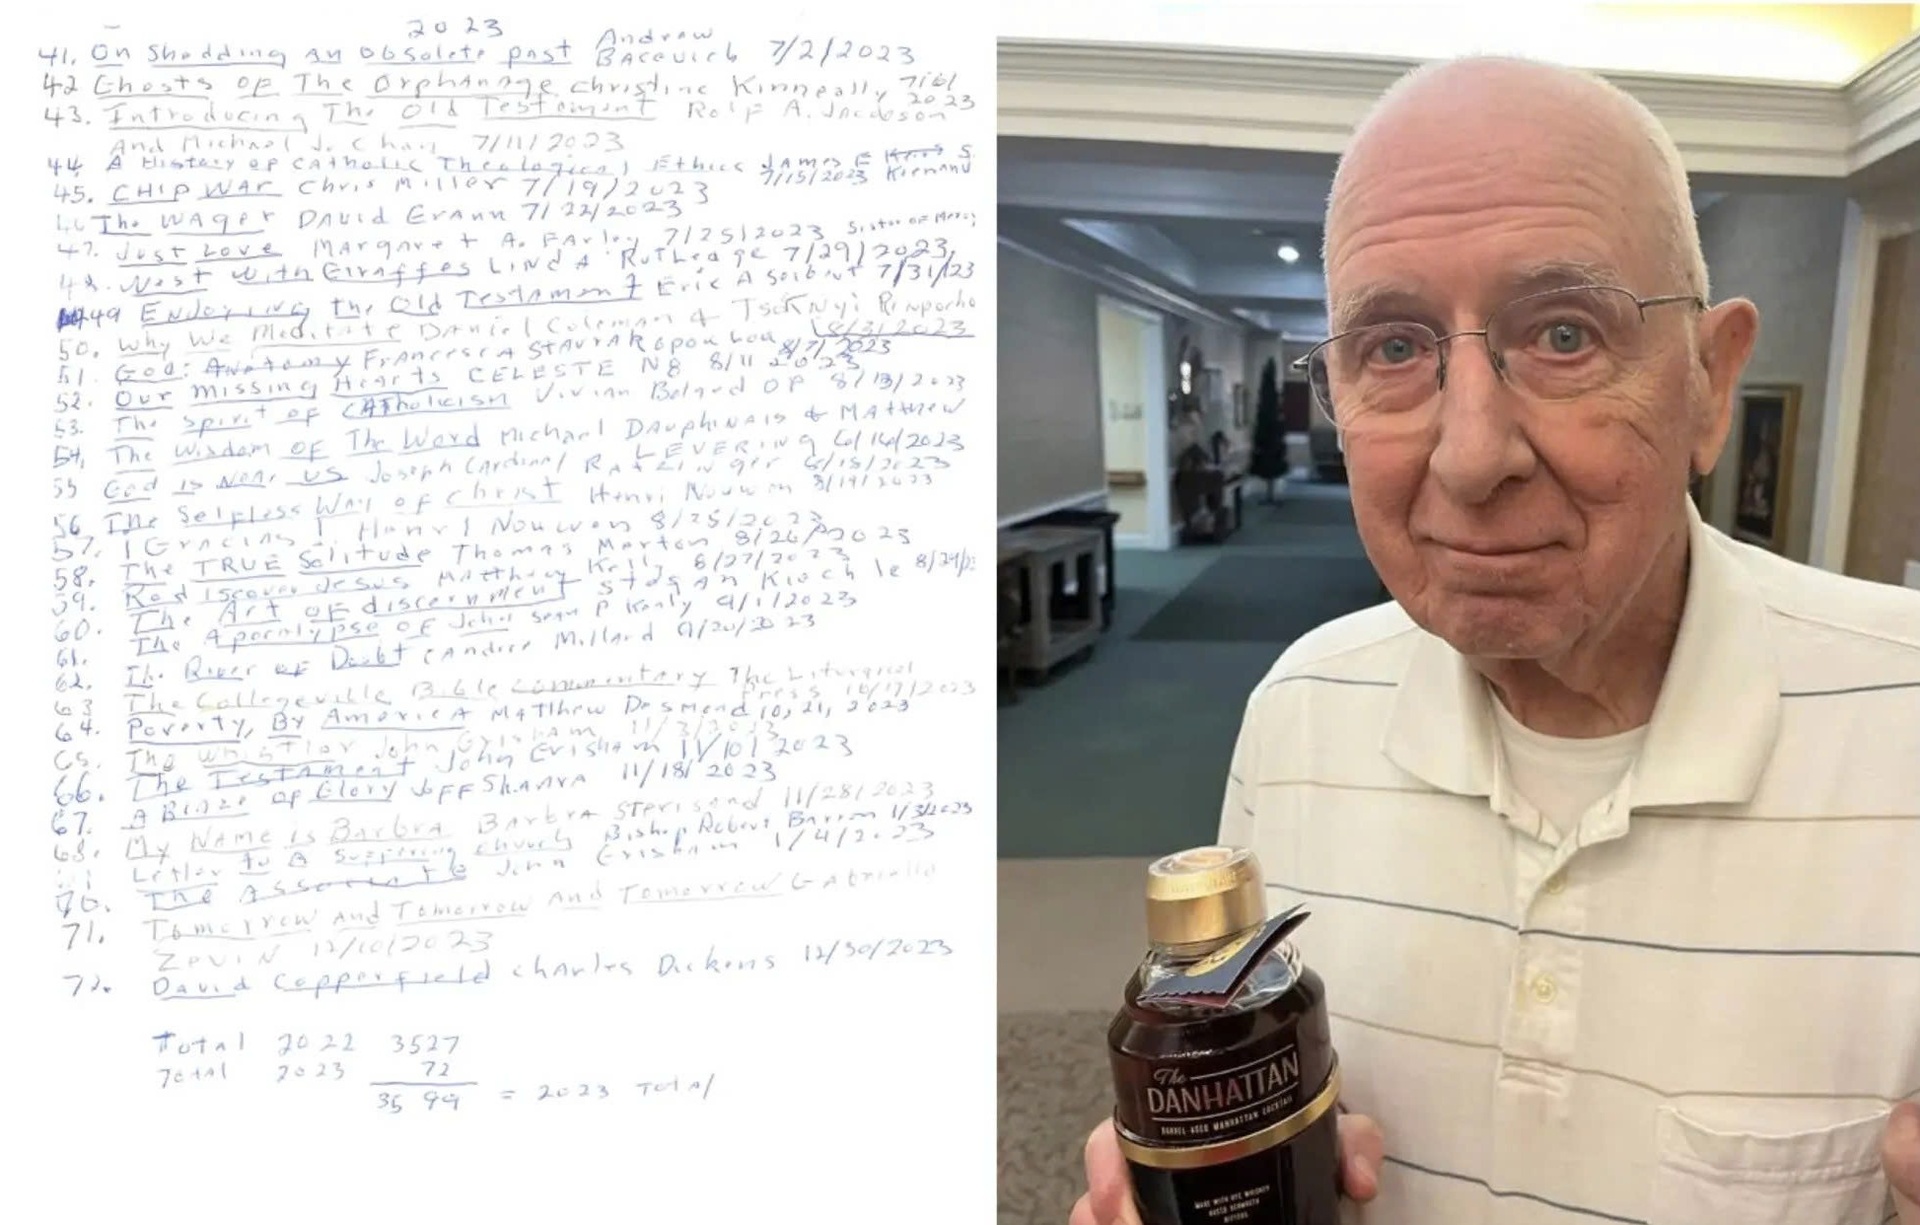 2023
41. On Shedding An Obsolete past Andrew
Bacevich 7/2/2023
42 Ghosts of The Orphanage christine Kenneally 7/6/
2023
43. Introducing The Old Testament Rolf A. Jacobson
And Michael J. Chan 7/11/2023
44. A History of Catholic Theological Ethics James F. S.
7/15/2023 Keenan
45. CHIP WAR Chris Miller 7/19/2023
The WAGER DAVID Grann 7/22/2023
47. Just Love Margaret A. Farley 7/25/2023 Sister of Mercy
48. West with Giraffes LINDA Rutledge 7/29/2023
49 Enjoying the Old Testament Eric A Seibert 7/31/23
50. Why We Meditate Daniel Goleman & Tsoknyi Rinpoche
8/3/2023
51. God: Anatomy Francesca Stavrakopoulou 8/7/2023
52. Our missing Hearts CELESTE Ng 8/11 2023
53. The Spirit of Catholicism Vivian Boland OP 8/13/2023
54. The Wisdom of The Word Michael Dauphinais & Matthew
LEVERING 6/16/2023
55 God is Near us Joseph Cardinal Ratzinger 8/18/2023
56. The Selfless Way of Christ Henri Nouwen 8/19/2023
57. Gracias Henri Nouwen 8/25/2023
58. The TRUE Solitude Thomas Merton 8/26/2023
59. Rediscover Jesus Matthew Kelly 8/27/2023
60. The Art of discernment Stefan Kiechle 8/29/23
61. The Apocalypse of John Sean P Kealy 9/1/2023
62. The River of Doubt Candice Millard 9/20/2023
63 The Collegeville Bible Commentary The Liturgical
Press 10/17/2023
64. Poverty, By America Matthew Desmond 10, 21, 2023
65. The Whistler John Grisham 11/3/2023
66. The Testament John Grisham 11/10/2023
67. A Blaze of Glory Jeff Shaara 11/18/2023
68. My Name is Barbra Barbra Streisand 11/28/2023
Letter to A Suffering church Bishop Robert Barron 1/3/2023
70. The Associate John Grisham 1/4/2023
71. Tomorrow And Tomorrow And Tomorrow Gabrielle
ZEVIN 12/10/2023
72. David Copperfield Charles Dickens 12/30/2023
Total 2022 3527
Total 2023 72
3599 = 2023 Total
The
DANHATTAN
BARREL-AGED MANHATTAN COCKTAIL
MADE WITH RYE WHISKEY
SWEET VERMOUTH
BITTERS